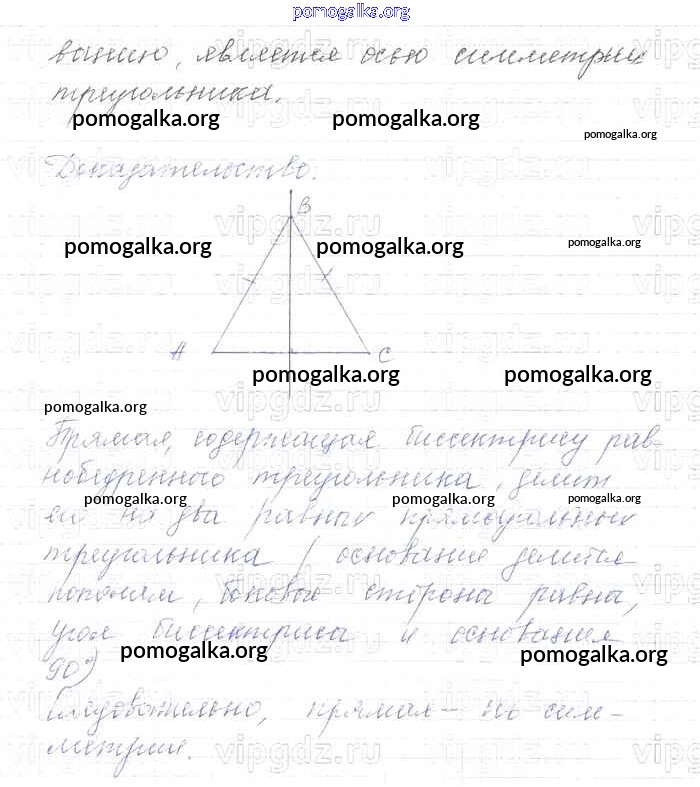 pomogalka.org
ванию, является осью симметрии
треугольника.
pomogalka.org pomogalka.org pomogalka.org
Доказательство.
B
vipgdz.ru vipgdz.ru vipgdz.ru
pomogalka.org pomogalka.org pomogalka.org
A C
pomogalka.org pomogalka.org
pomogalka.org
Прямая, содержащая биссектрису рав-
нобедренного треугольника, делит
pomogalka.org pomogalka.org pomogalka.org
его на два равных прямоугольных
треугольника / основание делится
пополам, боковые сторона равна,
угол биссектриса и основания
90°)
pomogalka.org pomogalka.org
Следовательно, прямая - сим-
метрии.
vipgdz.ru vipgdz.ru vipgdz.ru